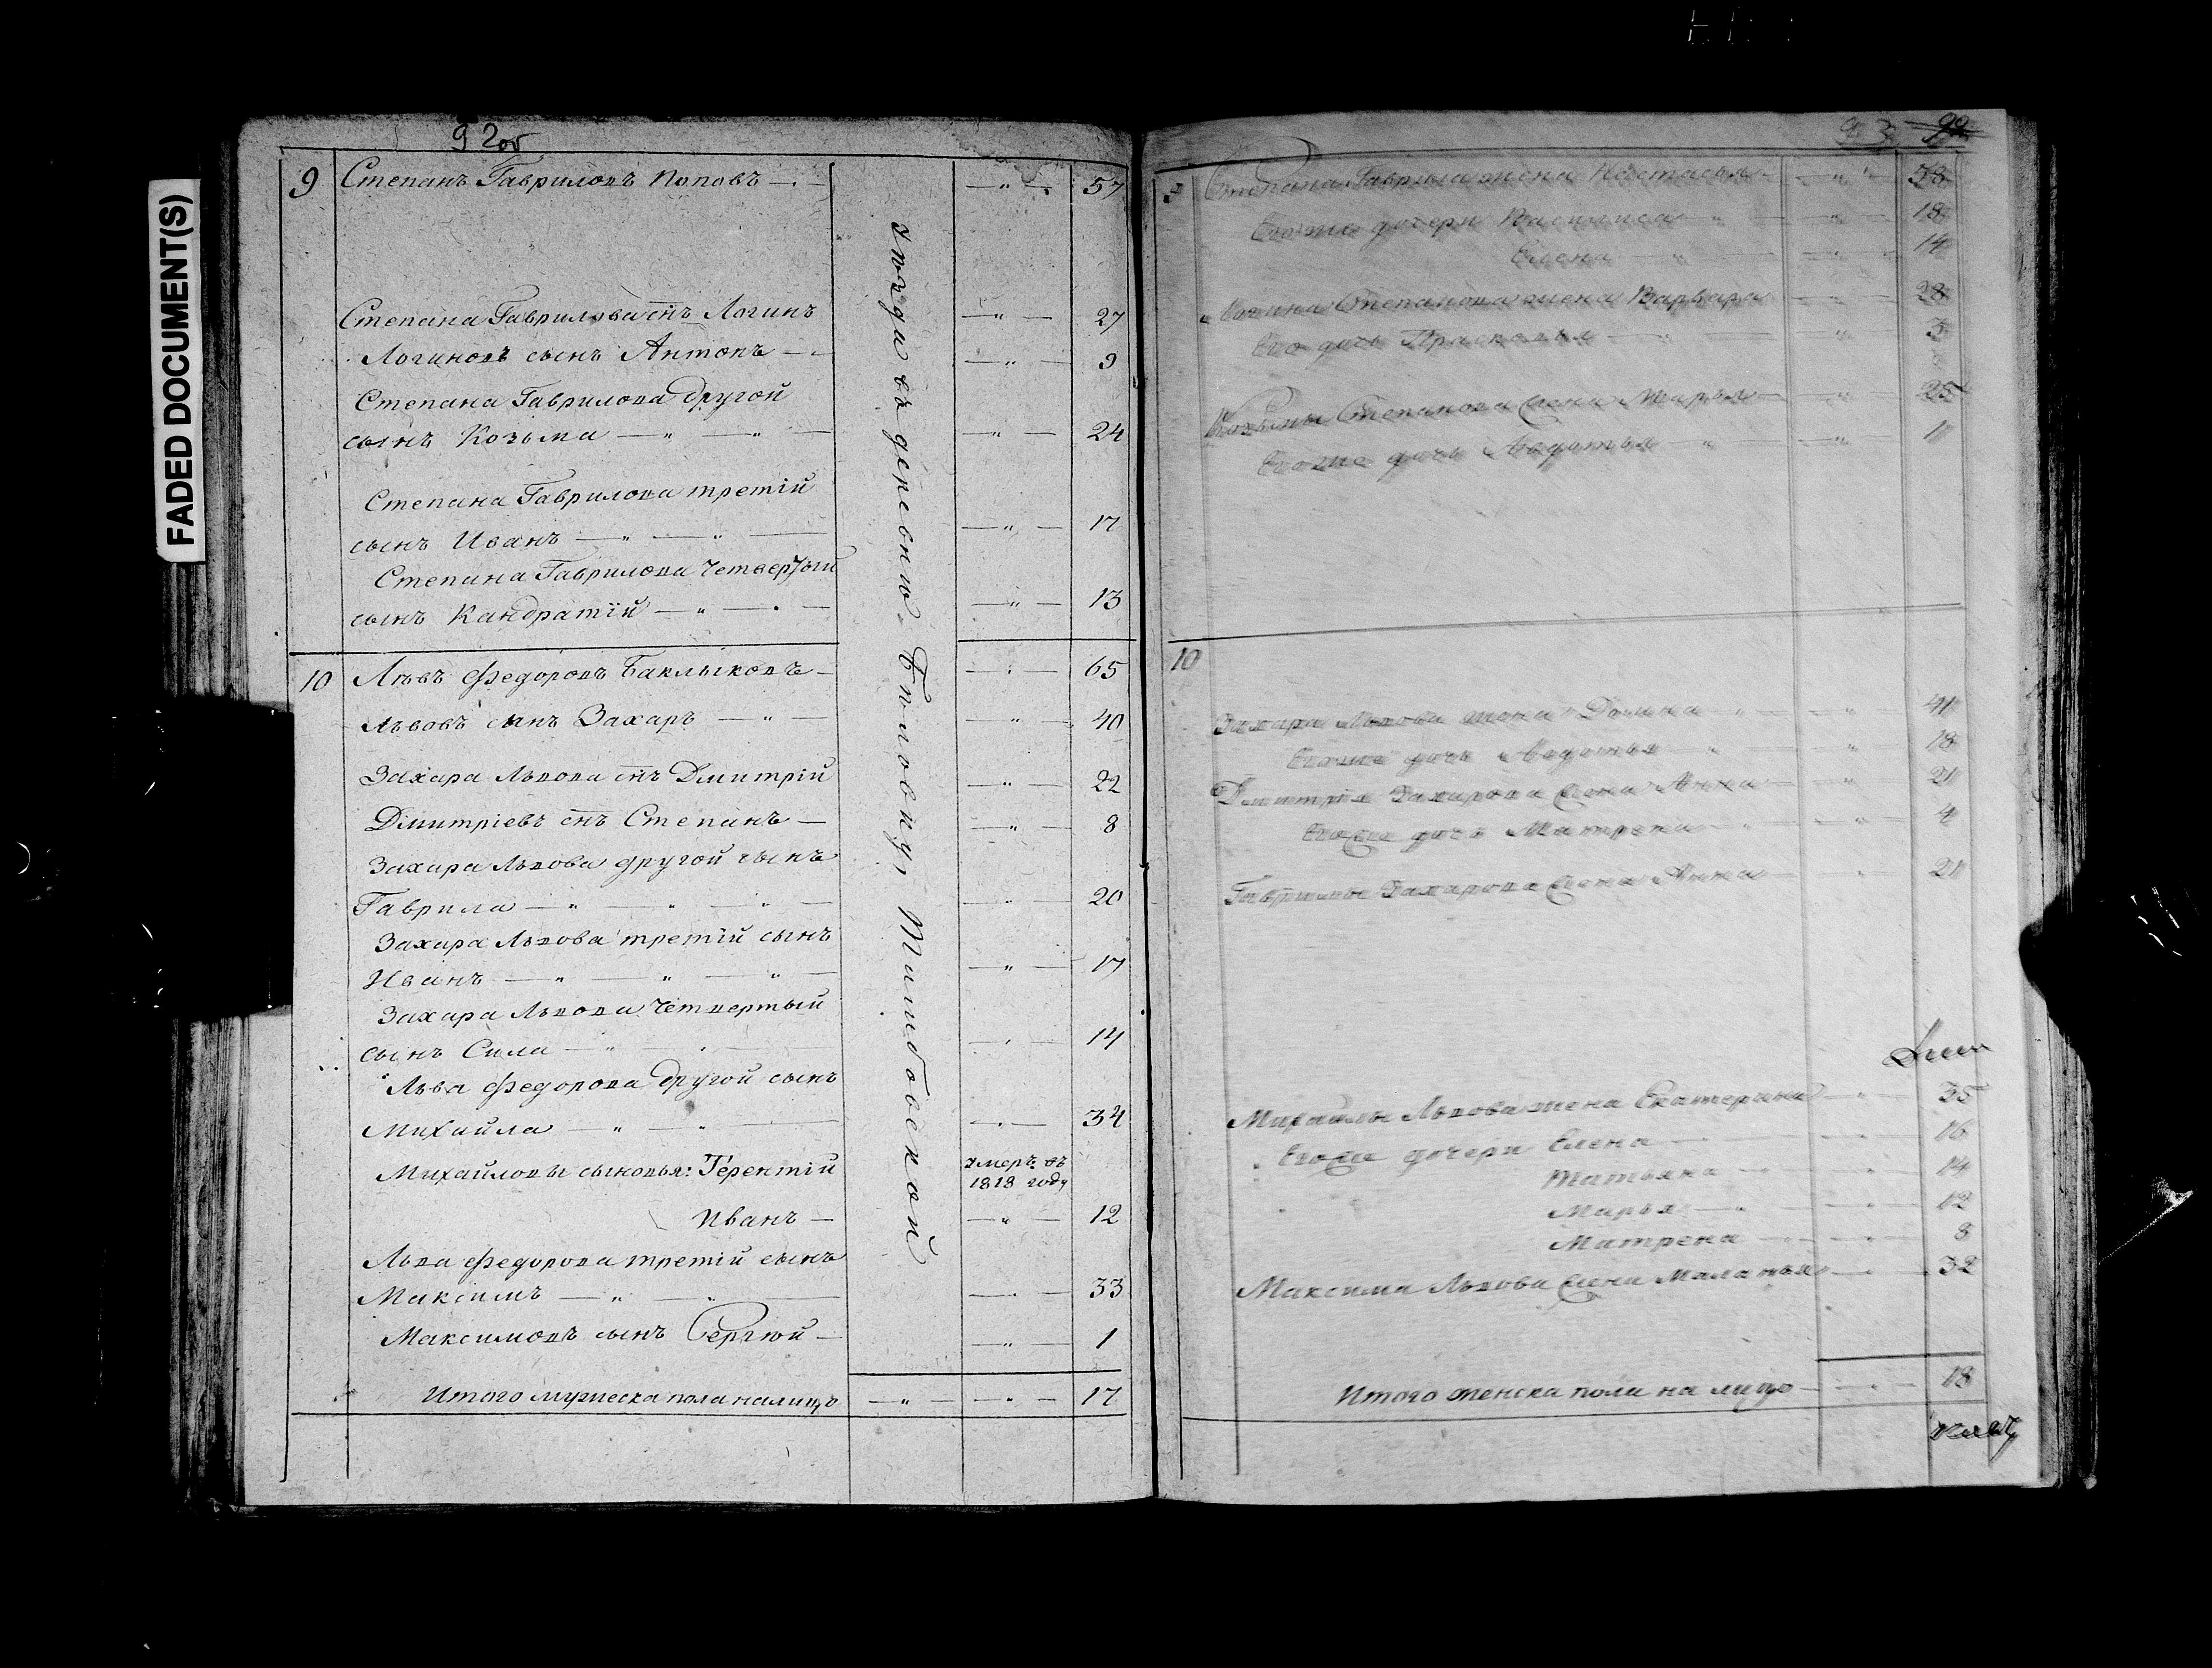 FADED DOCUMENT(S)
92об
9 Степанъ Гавриловъ Поповъ — 57
Степана Гаврилова снъ Логинъ — " — 27
Логиновъ сынъ Антонъ — " — 9
Степана Гаврилова другой
сынъ Козьма — " — " — 24
Степана Гаврилова третій
сынъ Иванъ — " — " — 17
Степана Гаврилова четвертый
сынъ Кандратій — " — 13
10 Львъ Федоровъ Баклыковъ — 65
Львовъ сынъ Захаръ — " — 40
Захара Львова снъ Дмитрій — " — 22
Дмитріевъ снъ Степанъ — " — 8
Захара Львова другой сынъ
Гаврила — " — " — " — 20
Захара Львова третій сынъ
Иванъ — " — " — " — 17
Захара Львова четвертый
сынъ Сила — " — 14
Льва Федорова другой сынъ
Михайла — " — " — 34
Михайловы сыновья: Терентій умеръ въ
1818 году
Иванъ — " — 12
Льва Федорова третій сынъ
Максимъ — " — " — 33
Максимовъ сынъ Сергюй — " — 1
Итого мужеска пола налицо — " — " — 17
уезда въ деревню
93 92
Степана Гаврила жена Настасья — " — 58
Егоже дочери Василиса — " — 18
Елена — " — 14
Логина Степанова жена Варвара — 28
Его дочь Прасковья — " — 3
Козьмы Степанова жена Марья — " — 25
Егоже дочь Авдотья — " — 1
10
Захара Львова жена Домна — " — 41
Егоже дочь Авдотья — " — 18
Дмитрія Захарова жена Анна — " — 21
Егоже дочь Матрена — " — 4
Гаврилы Захарова жена Анна — 21
Михайлы Львова жена Екатерина — " — 35
Егоже дочери Елена — 16
Татьяна — " — 14
Марья — " — 12
Матрена — " — 8
Максима Львова жена Маланья — 32
Итого женска пола на лицо — " — 18